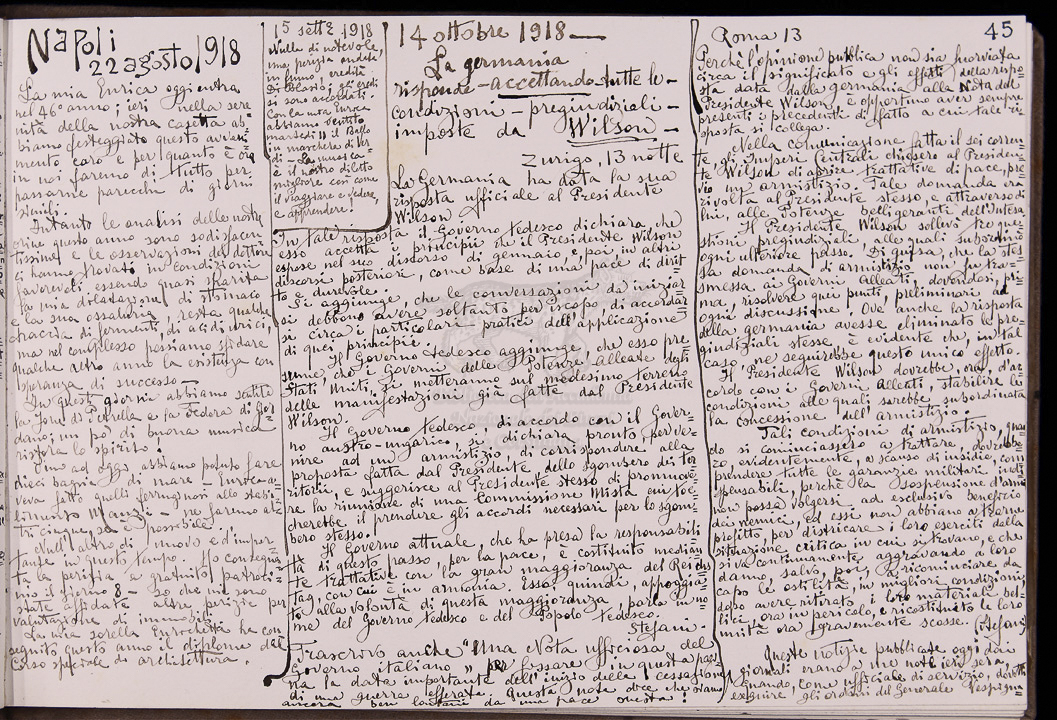 45
Napoli
22 agosto 1918
La mia Enrica oggi entra
nel 46° anno; ieri nella sere
nità della nostra casetta ab=
biamo festeggiato questo avveni
mento caro e per quanto è ora
in noi faremo di tutto per
passarne parecchi di giorni
simili.
Intanto le analisi delle nostre
orine questo anno sono sodisfacen
tissime e le osservazioni del dottore
ci hanno trovati in condizioni
favorevoli essendo quasi sparita
la mia dilatazione di stomaco
e la sua ossaluria, resta qualche
traccia di fermenti, di acidi urici,
ma nel complesso possiamo sfidare
qualche altro anno la esistenza con
speranza di successo.
In questi giorni abbiamo sentito
la Jone di Petrella e la Fedora di Gior
dano; un po' di buona musica
ristora lo spirito.
Fino ad oggi abbiamo potuto fare
dieci bagni di mare - Enrica a=
veva fatto quelli ferruginosi allo stabi=
limento Manzi - ne faremo al
tri cinque, se è possibile.
Null'altro di nuovo e d'impor=
tante in questo tempo. Ho consegna
ta la perizia a gratuito patroci=
nio il giorno 8 - So che mi sono
state affidate altre perizie per
valutazione di immobili.
La mia sorella Enrichetta ha con
seguito questo anno il diploma del
corso speciale di architettura.
15 sett.e 1918
Nulla di notevole,
una perizia andata
in fumo, eredità
Di Blasio; gli eredi
si sono accordati.
Con la mia Enrica
abbiamo sentito
martedì 10 il Ballo
in maschera di Ver
di - La musica
è il nostro diletto
migliore così come
il viaggiare e vedere,
e apprendere!
14 ottobre 1918 —
La germania
risponde - accettando - tutte le -
condizioni - pregiudiziali -
imposte da Wilson -
Zurigo, 13 notte
La Germania ha data la sua
risposta ufficiale al Presidente
Wilson.
In tale risposta il Governo tedesco dichiara che
esso accetta i principii che il Presidente Wilson
espose nel suo discorso di gennaio e, poi, in altri
discorsi posteriori, come base di una pace di dirit=
to e durevole.
Si aggiunge, che le conversazioni da iniziar
si debbono avere soltanto per iscopo, di accordar
si circa i particolari pratici dell'applicazione
di quei principii.
Il Governo tedesco aggiunge, che esso pre
sume, che i Governi delle Potenze Alleate degli
Stati Uniti, si metteranno sul medesimo terreno
delle manifestazioni già fatte dal Presidente
Wilson.
Il Governo tedesco, di accordo con il Gover=
no austro-ungarico, si dichiara pronto, per ve=
nire ad un armistizio, di corrispondere alla
proposta fatta dal Presidente, dello sgombero dei ter
ritorii, e suggerisce al Presidente stesso di promuove
re la riunione di una Commissione Mista cui toc=
cherebbe il prendere gli accordi necessari per lo sgom=
bero stesso.
Il Governo attuale, che ha presa la responsabili
tà di questo passo per la pace, è costituito median
te trattative con la gran maggioranza del Reichs
tag, con cui è in armonia. Esso quindi, appoggia
to alla volontà di questa maggioranza parla in no=
me del Governo tedesco e del Popolo tedesco.
Stefani -
Trascrivo anche "Una Nota ufficiosa del
Governo italiano" per fissare in questa pagi
na la data importante dell'inizio della cessazione
di una guerra efferata. Questa nota dice che siamo
ancora ben lontani da una pace onesta!
Roma 13
Perchè l'opinione pubblica non sia fuorviata
circa il significato e gli effetti della rispo=
sta data dalla germania alla Nota del
Presidente Wilson, è opportuno aver sempre
presenti i precedenti di fatto a cui tale ri=
sposta si collega.
Nella comunicazione fatta il sei corren=
te, gli Imperi Centrali chiesero al Presiden=
te Wilson di aprire trattative di pace, pre=
vio un armistizio. Tale domanda era
rivolta al Presidente stesso, e attraverso di
lui, alle Potenze belligeranti dell'Intesa.
Il Presidente Wilson sollevò tre que=
stioni pregiudiziali, alle quali subordinò
ogni ulteriore passo. Di guisa, che la stes
sa domanda di armistizio non fu tra=
smessa ai Governi Alleati, dovendosi, pri=
ma, risolvere quei punti, preliminari ad
ogni discussione. Ove anche la risposta
della germania avesse eliminato le pre=
giudiziali stesse, è evidente che, in tal
caso, ne seguirebbe questo unico effetto.
Il Presidente Wilson dovrebbe, ora, d'ac=
cordo con i Governi Alleati, stabilire le
condizioni alle quali sarebbe subordinata
la concessione dell'armistizio.
Tali condizioni di armistizio, quan
do si cominciassero a trattare, dovrebbe
ro evidentemente, a scanso di insidie, com
prendere tutte le garanzie militari indi
spensabili, perchè la sospensione d'armi
non possa volgersi ad esclusivo beneficio
dei nemici, ed essi non abbiano a trarne
profitto, per districare i loro eserciti dalla
situazione critica in cui si trovano, e che
si va continuamente aggravando a loro
danno, salvo, poi, a ricominciare da
capo le ostilità, in migliori condizioni,
dopo avere ritirato i loro materiali bel=
lici, ora in pericolo, e ricostituito le loro
unità ora gravemente scosse. (Stefani)
Queste notizie pubblicate oggi dai
giornali erano a me note ieri sera,
quando, come ufficiale di servizio, dovetti
eseguire gli ordini del Generale